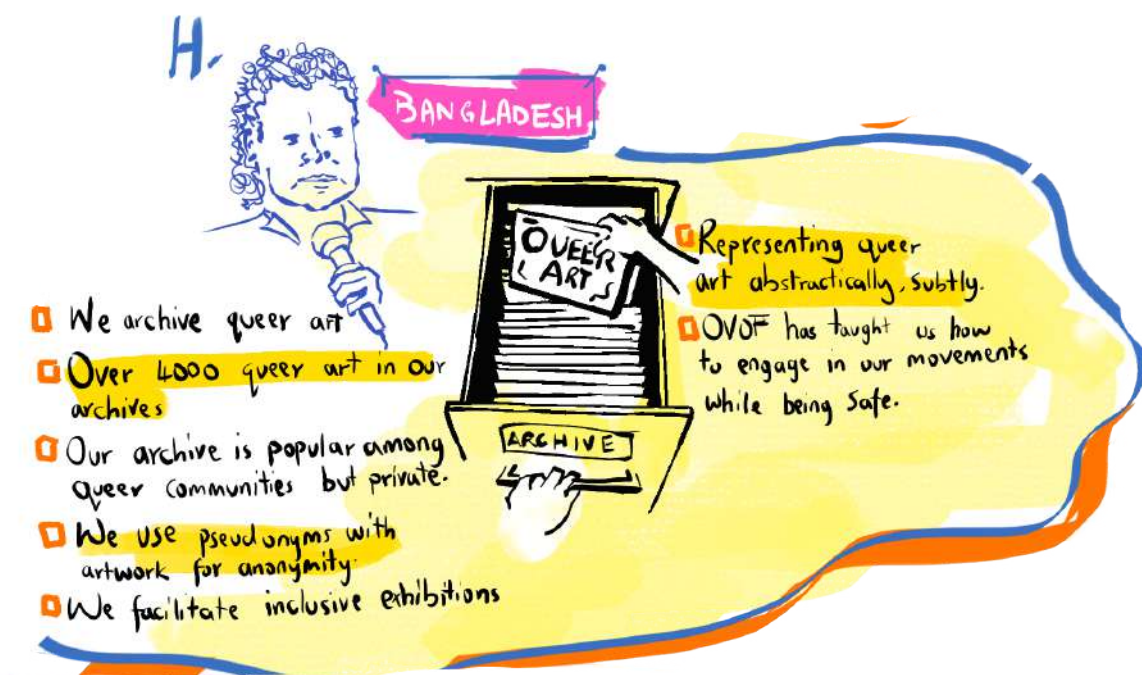 H.
BANGLADESH
We archive queer art
Over 4000 queer art in our
archives
Our archive is popular among
queer communities but private.
We use pseudonyms with
artwork for anonymity.
We facilitate inclusive exhibitions
QUEER
ART
ARCHIVE
Representing queer
art abstractically, subtly.
OVOF has taught us how
to engage in our movements
while being safe.